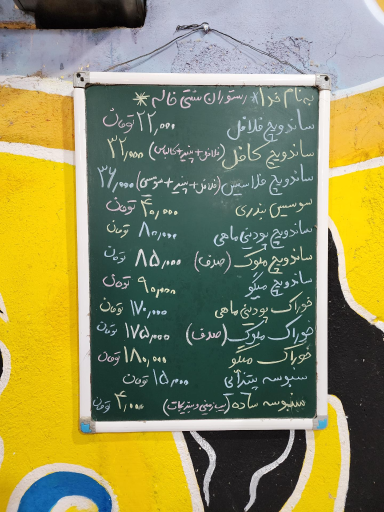 به نام خدا * رستوران سنتی خاله *
ساندویچ فلافل ۲۲,۰۰۰ تومان
ساندویچ کافل (فلافل+پنیر+کالباس) ۳۲,۰۰۰
ساندویچ فلاسیس (فلافل+پنیر+سوسیس) ۳۶,۰۰۰ تومان
سوسیس بندری ۴۰,۰۰۰ تومان
ساندویچ پودنی ماهی ۸۰,۰۰۰ تومان
ساندویچ ملوک (صدف) ۸۵,۰۰۰ تومان
ساندویچ میگو ۹۰,۰۰۰ تومان
خوراک پودنی ماهی ۱۷۰,۰۰۰ تومان
خوراک ملوک (صدف) ۱۷۵,۰۰۰ تومان
خوراک میگو ۱۸۰,۰۰۰ تومان
سمبوسه پیتزائی ۱۵,۰۰۰ تومان
سمبوسه ساده (سیب زمینی و سبزیجات) ۴,۰۰۰ تومان